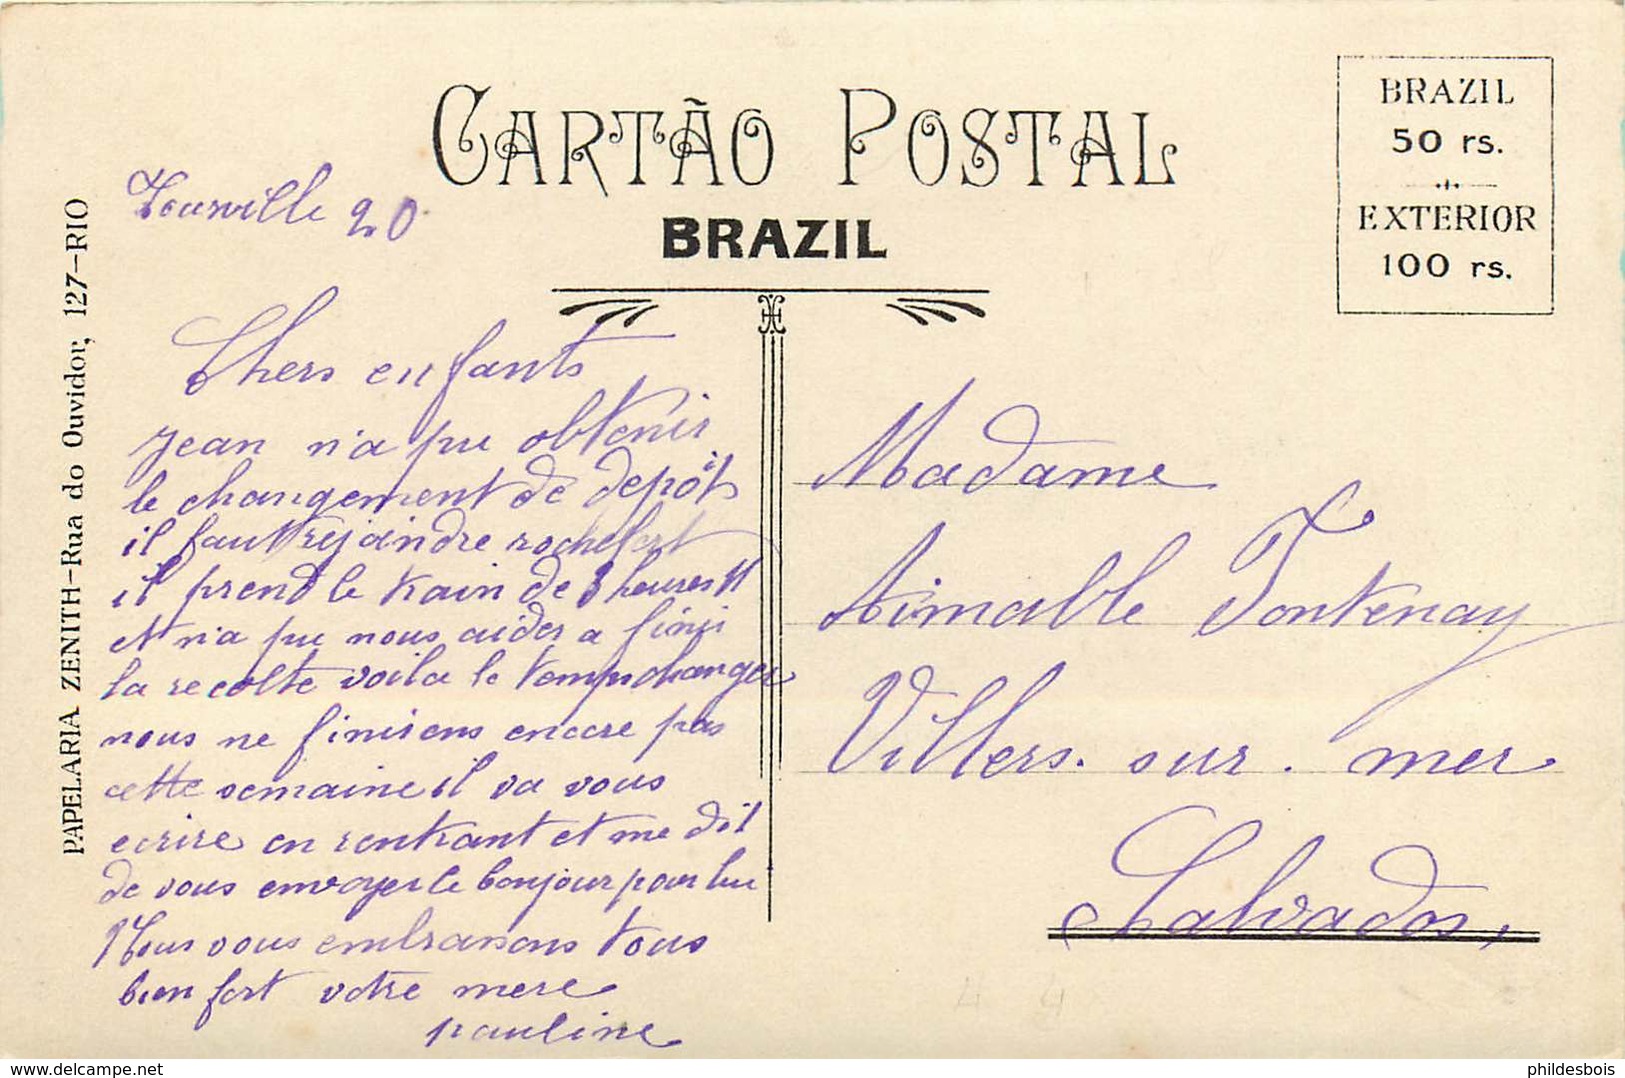 CARTÃO POSTAL
BRAZIL
BRAZIL
50 rs.
EXTERIOR
100 rs.
PAPELARIA ZENITH-Rua do Ouvidor, 127-RIO
Tourville 20
Chers enfants
Jean n'a pu obtenir
le changement de depôt
il faut rejoindre rochefort
il prend le train de 8 heures 11
et n'a pu nous aider a finir
la recolte voila le temps changer
nous ne finirens encore pas
cette semaine il va vous
ecrire en rentrant et me dit
de vous envoyer le bonjour pour lui
Nous vous embrasons tous
bien fort votre mere
pauline
Madame
Aimable Fontenay
Villers. sur. mer
Calvados,
delcampe.net
phildesbois